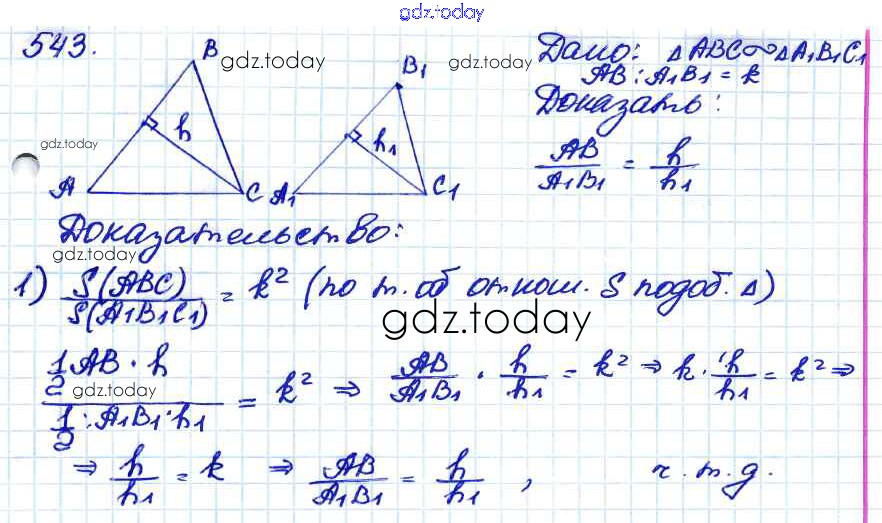 gdz.today
543.
B gdz.today B₁ gdz.today
Дано: △ABC∾△A₁B₁C₁
AB : A₁B₁ = k
Доказать:
AB/A₁B₁ = h/h₁
gdz.today
h h₁
A C A₁ C₁
Доказательство:
gdz.today
1) S(ABC)/S(A₁B₁C₁) = k² (по т. об отнош. S подоб. △)
gdz.today
(1/2 AB · h)/(1/2 · A₁B₁ · h₁) = k² ⇒ AB/A₁B₁ · h/h₁ = k² ⇒ k · h/h₁ = k² ⇒
gdz.today
⇒ h/h₁ = k ⇒ AB/A₁B₁ = h/h₁, ч.т.д.